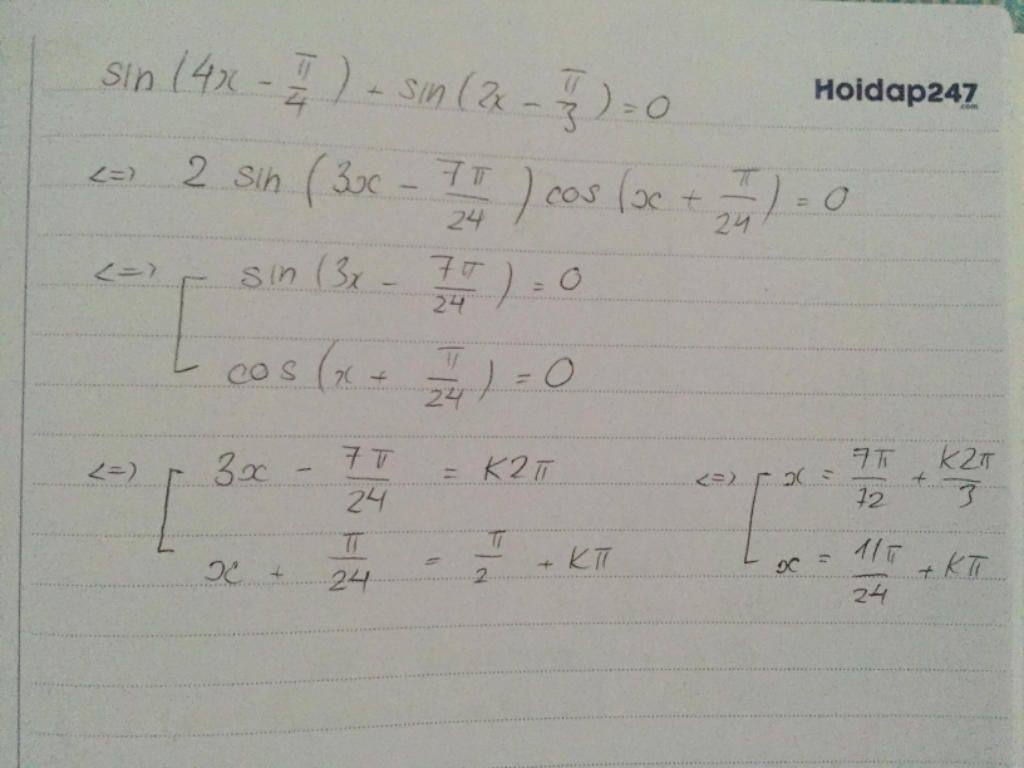 sin (4x - π/4) + sin (2x - π/3) = 0
Hoidap247
.com
<=> 2 sin (3x - 7π/24) cos (x + π/24) = 0
<=> [ sin (3x - 7π/24) = 0
cos (x + π/24) = 0
<=> [ 3x - 7π/24 = K2π <=> [ x = 7π/72 + K2π/3
x + π/24 = π/2 + Kπ x = 11π/24 + Kπ